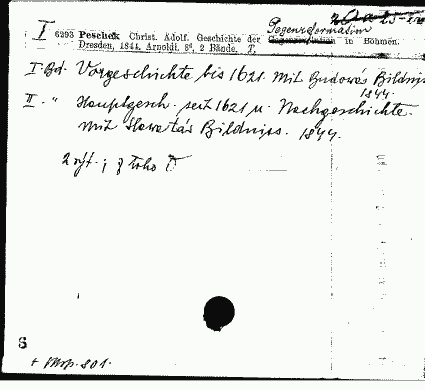 I 6293 Pescheck Christ. Adolf. Geschichte der Gegenreformation in Böhmen.
Dresden, 1844. Arnoldi. 8°, 2 Bände. T.
I. Bd. Vorgeschichte bis 1621. Mit Budowas Bildniss
1844.
II. " Hauptgesch. seit 1621 u. Nachgeschichte.
Mit Slavatas Bildniss. 1844.
2
S
+ 801.